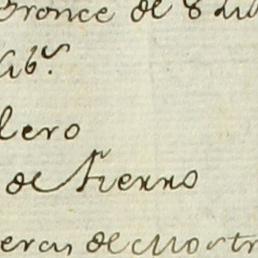 Bronce de 8 Lib
Lib.ˢ
lero
de Fierro
eras de Mostr